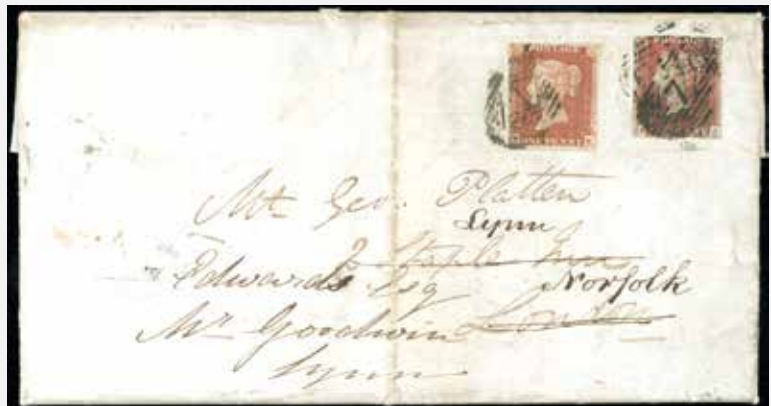 POSTAGE
ONE PENNY
Mr Geo. Platten
Lynn
2 Staple Inn
Edwards Esq
Norfolk
Mr Goodwin
London
Lynn